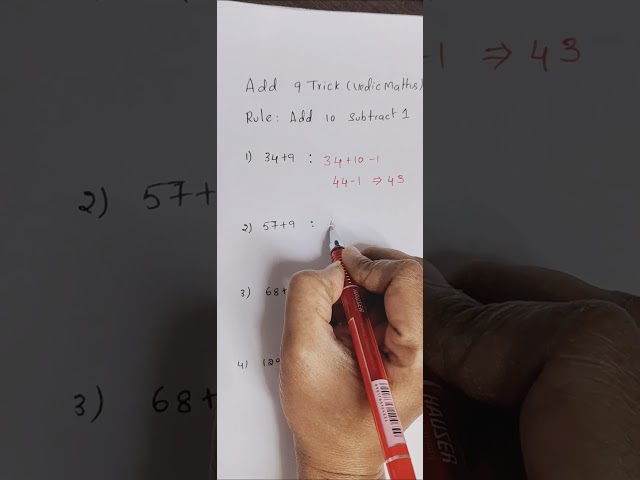 Add 9 Trick (Vedic Maths)
Rule: Add 10 Subtract 1
1) 34+9 : 34+10-1
44-1 ⇒ 43
2) 57+9 :
3) 68+
4) 12
HAUSER